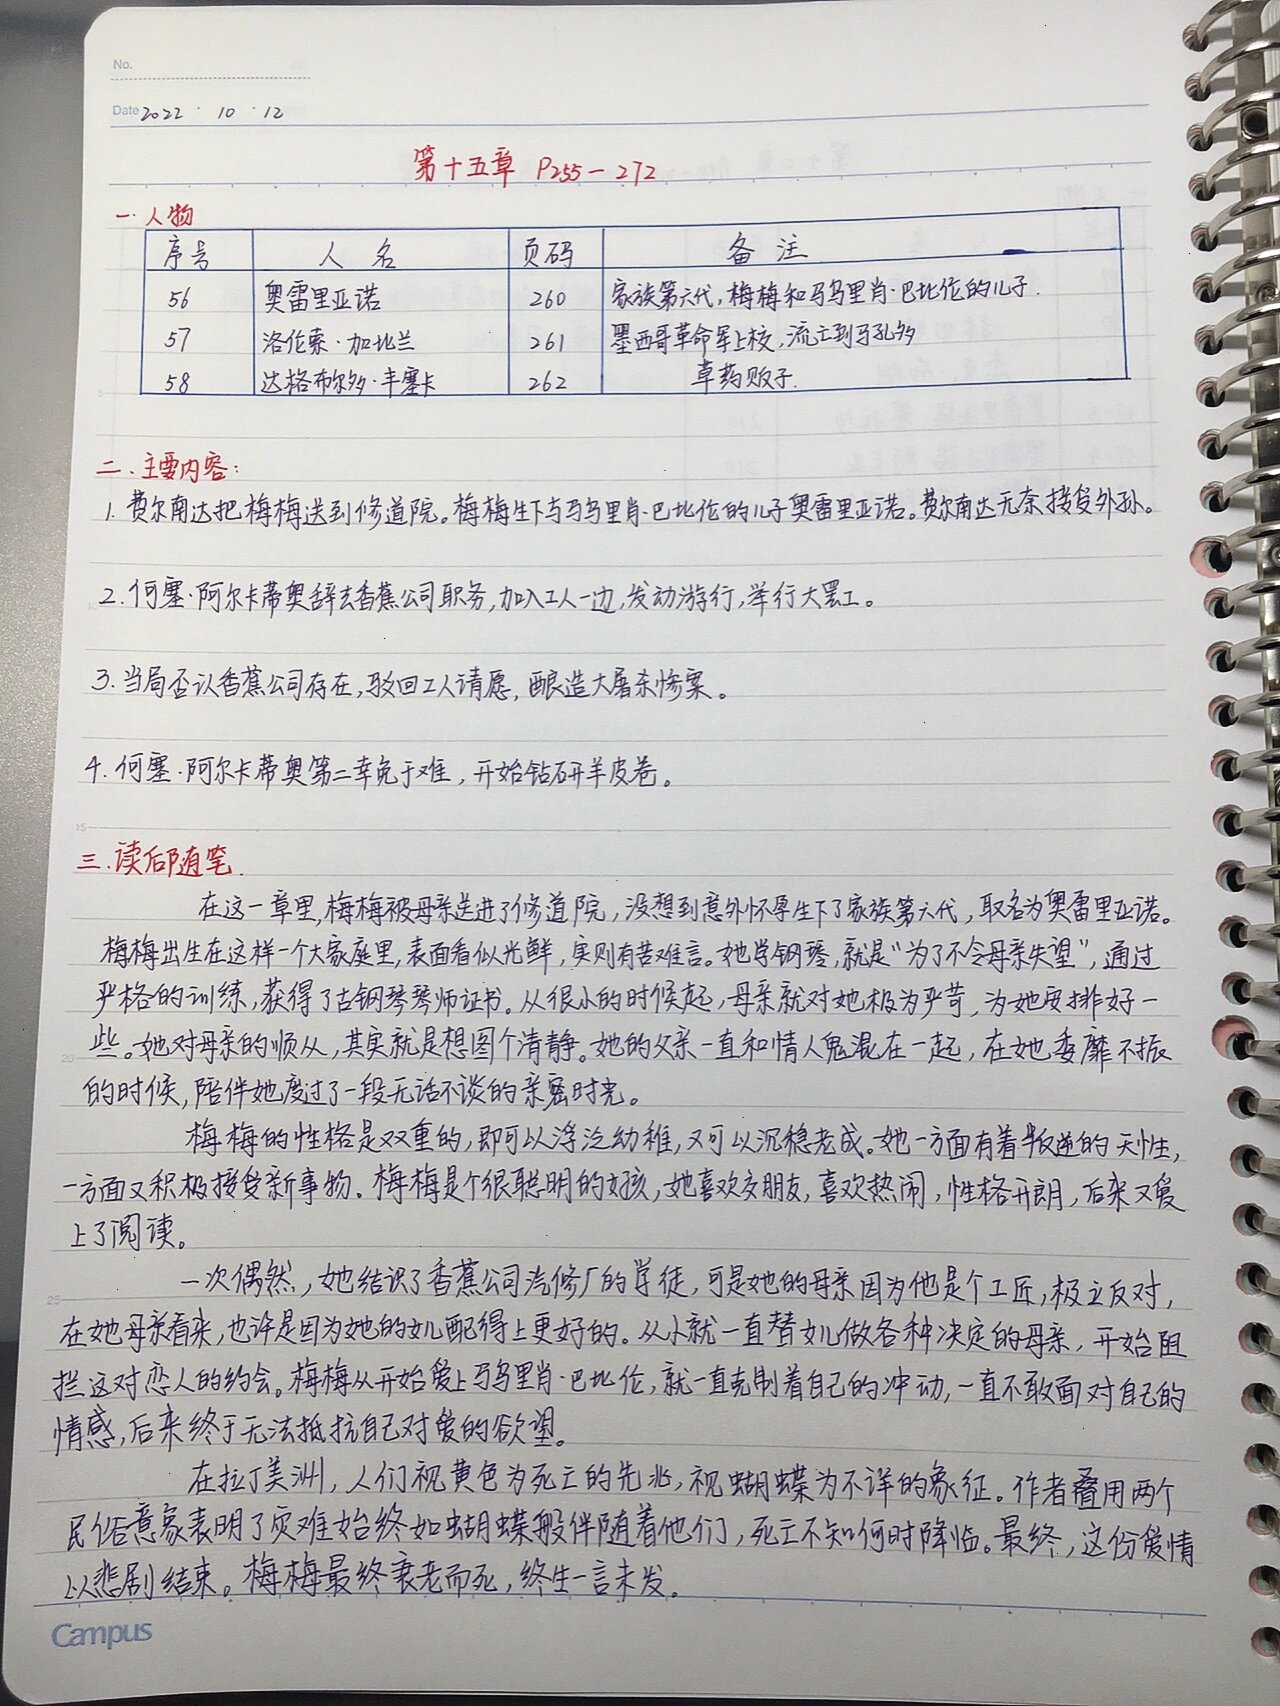 No.
Date 2022 · 10 · 12
第十五章 P255-272
一.人物
序号 人名 页码 备注
56 奥雷里亚诺 260 家族第六代,梅梅和马乌里肖·巴比伦的儿子.
57 洛伦索·加比兰 261 墨西哥革命军上校,流亡到马孔多
58 达格布尔多·丰塞卡 262 草药贩子.
二.主要内容:
1.费尔南达把梅梅送到修道院。梅梅生下与马乌里肖·巴比伦的儿子奥雷里亚诺。费尔南达无奈接受外孙。
2.何塞·阿尔卡蒂奥辞去香蕉公司职务,加入工人一边,发动游行,举行大罢工。
3.当局否认香蕉公司存在,驳回工人请愿,酿造大屠杀惨案。
4.何塞·阿尔卡蒂奥第二幸免于难,开始钻研羊皮卷。
三.读后随笔.
在这一章里,梅梅被母亲送进了修道院,没想到意外怀孕生下了家族第六代,取名为奥雷里亚诺。
梅梅出生在这样一个大家庭里,表面看似光鲜,实则有苦难言。她学钢琴,就是“为了不令母亲失望”,通过
严格的训练,获得了古钢琴琴师证书。从很小的时候起,母亲就对她极为严苛,为她安排好一
些。她对母亲的顺从,其实就是想图个清静。她的父亲一直和情人鬼混在一起,在她委靡不振
的时候,陪伴她度过了一段无话不谈的亲密时光。
梅梅的性格是双重的,即可以浮泛幼稚,又可以沉稳老成。她一方面有着叛逆的天性,
一方面又积极接受新事物.梅梅是个很聪明的女孩,她喜欢交朋友,喜欢热闹,性格开朗,后来又爱
上了阅读。
一次偶然,她结识了香蕉公司汽修厂的学徒,可是她的母亲因为他是个工匠,极立反对,
在她母亲看来,也许是因为她的女儿配得上更好的。从小就一直替女儿做各种决定的母亲,开始阻
拦这对恋人的约会。梅梅从开始爱上马乌里肖·巴比伦,就一直克制着自己的冲动,一直不敢面对自己的
情感,后来终于无法抵抗自己对爱的欲望。
在拉丁美洲,人们视黄色为死亡的先兆,视蝴蝶为不详的象征。作者叠用两个
民俗意象表明了灾难始终如蝴蝶般伴随着他们,死亡不知何时降临。最终,这份爱情
以悲剧结束。梅梅最终衰老而死,终生一言未发。
Campus